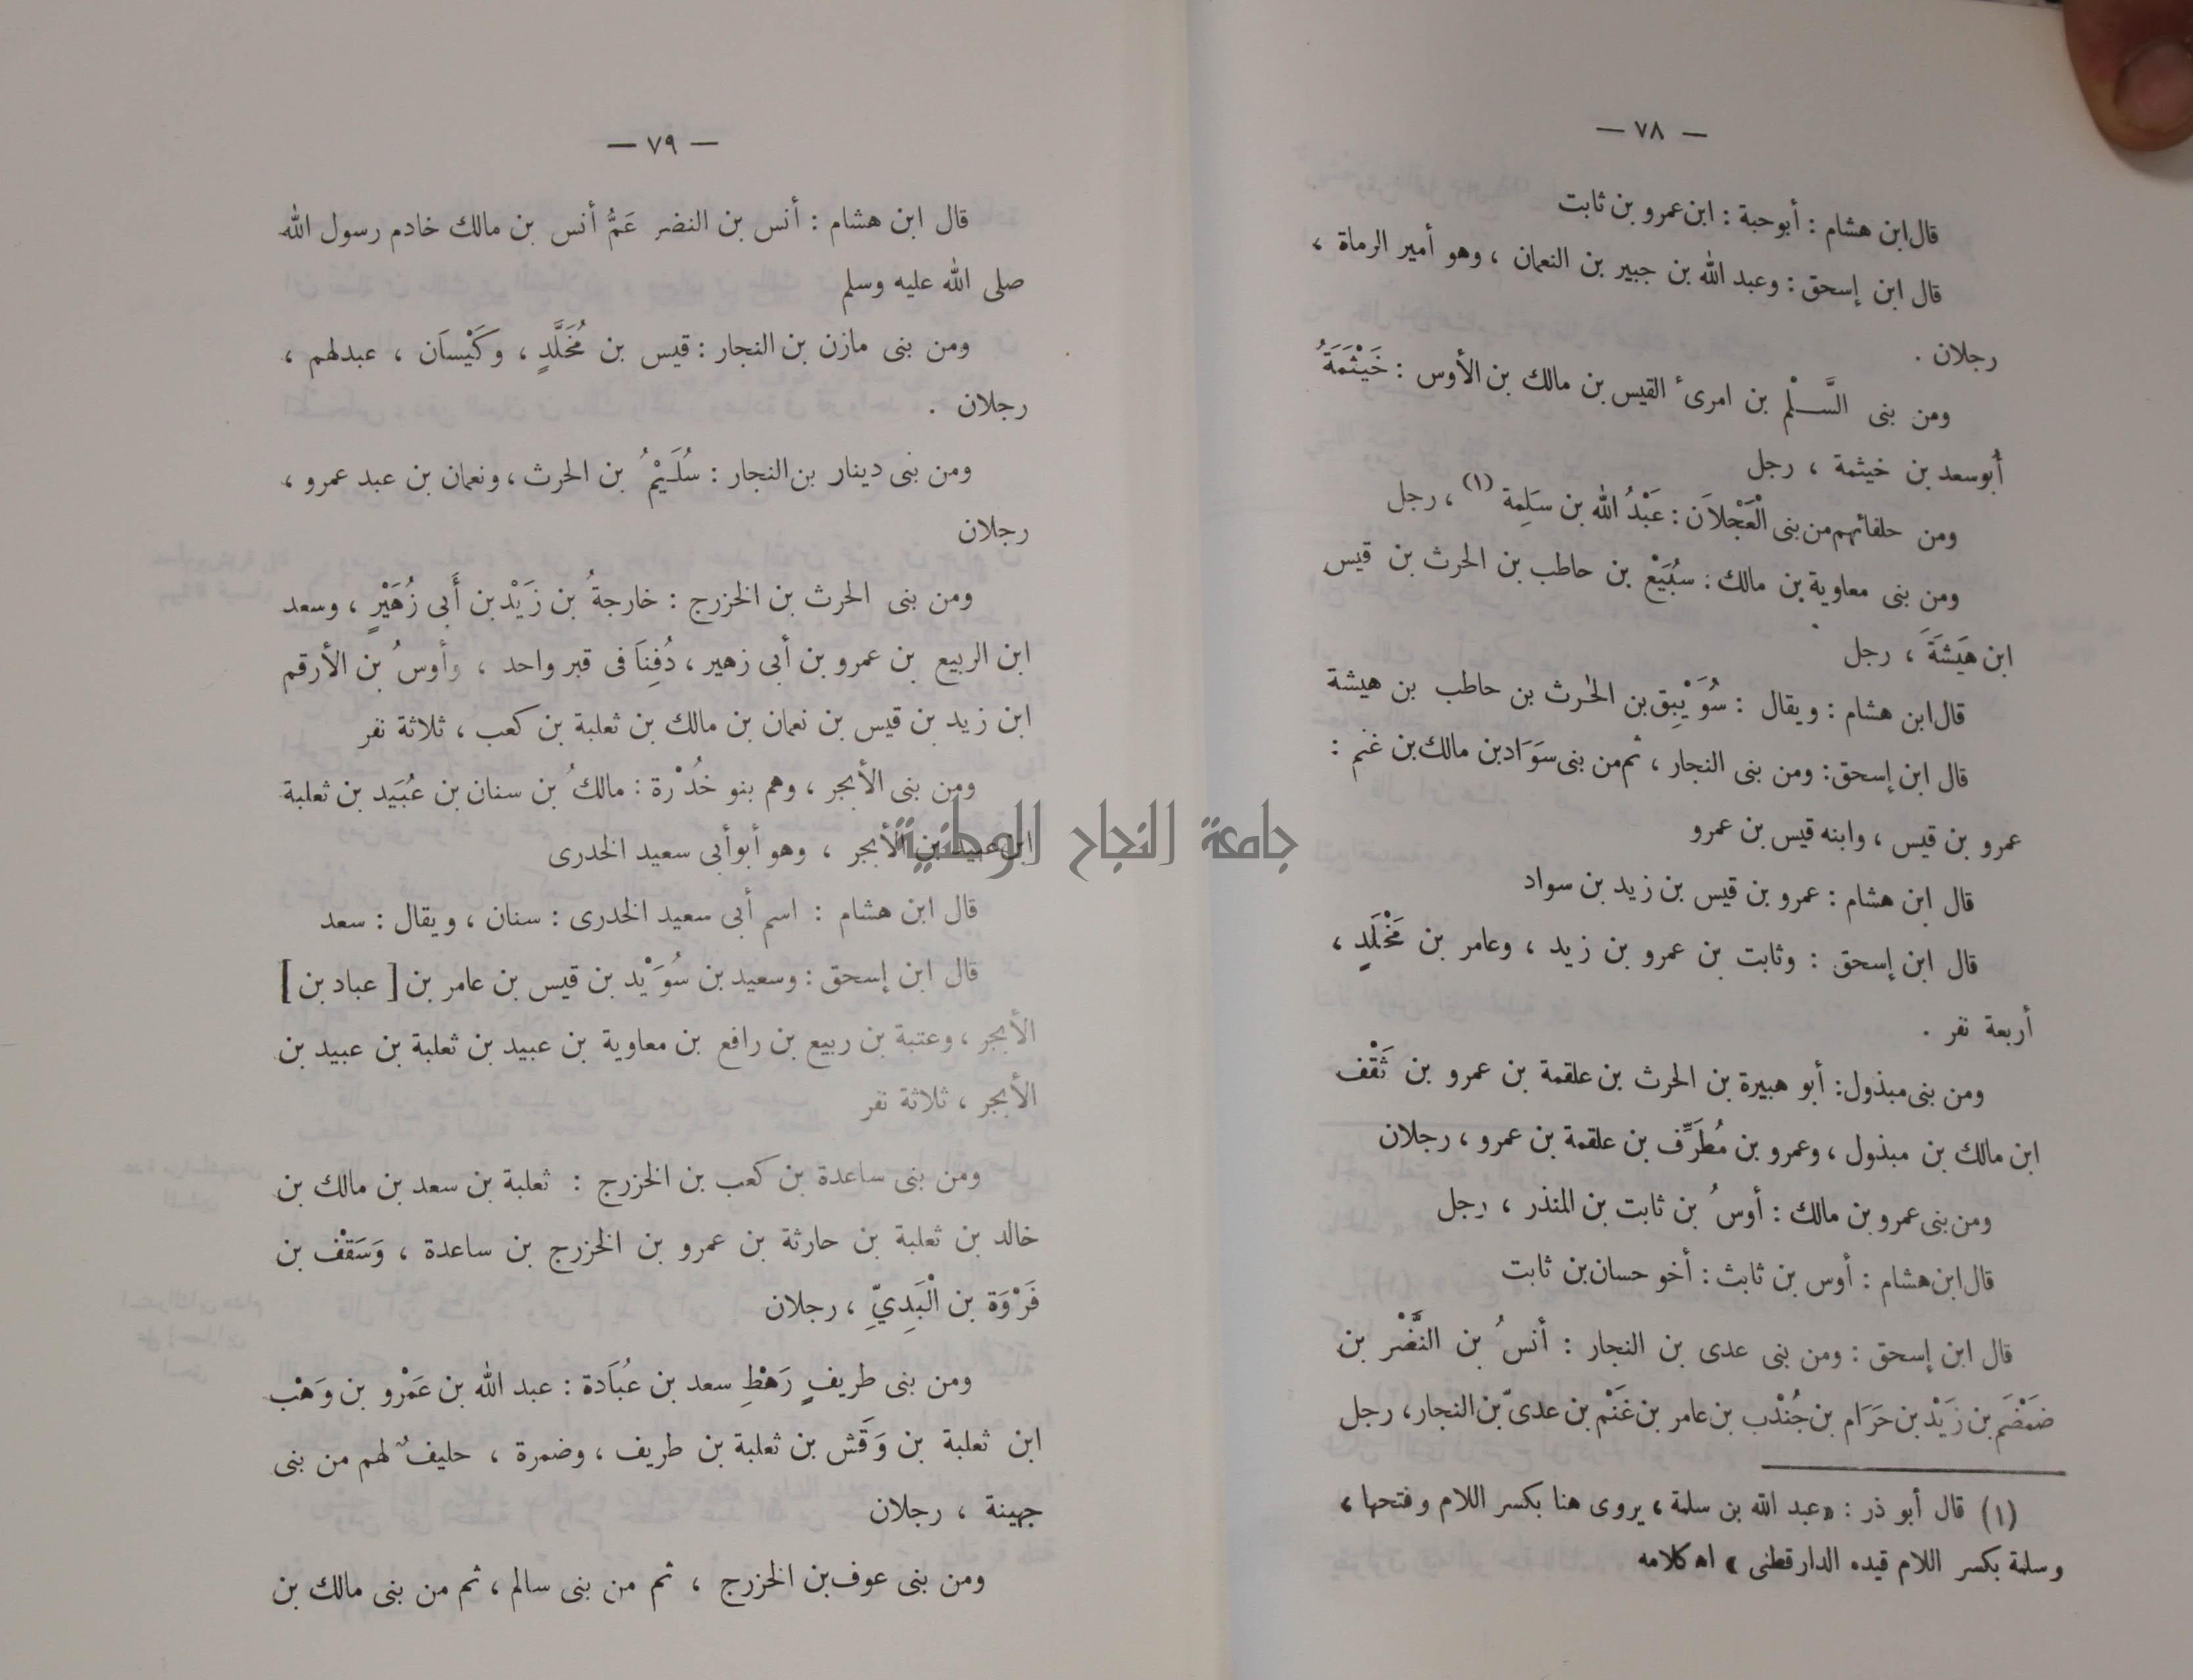 — ٧٨ —
قال ابن هشام : أبو حبة : ابن عمرو بن ثابت
قال ابن إسحق : وعبد الله بن جبير بن النعمان ، وهو أمير الرماة ،
رجلان .
ومن بنى السَّلْم بن امرئ القيس بن مالك بن الأوس : خَيْثَمَةُ
أبو سعد بن خيثمة ، رجل
ومن حلفائهم من بنى الْعَجْلاَن : عَبْدُ الله بن سَلِمة (١) ، رجل
ومن بنى معاوية بن مالك : سُبَيْع بن حاطب بن الحرث بن قيس
ابن هَيْشَةَ ، رجل
قال ابن هشام : ويقال : سُوَيْبِق بن الحرث بن حاطب بن هيشة
قال ابن إسحق : ومن بنى النجار ، ثم من بنى سَوَاد بن مالك بن غنم :
عمرو بن قيس ، وابنه قيس بن عمرو
قال ابن هشام : عمرو بن قيس بن زيد بن سواد
قال ابن إسحق : وثابت بن عمرو بن زيد ، وعامر بن مَخْلَدٍ ،
أربعة نفر .
ومن بنى مبذول : أبو هبيرة بن الحرث بن علقمة بن عمرو بن ثَقْف
ابن مالك بن مبذول ، وعمرو بن مُطَرِّف بن علقمة بن عمرو ، رجلان
ومن بنى عمرو بن مالك : أوسُ بن ثابت بن المنذر ، رجل
قال ابن هشام : أوس بن ثابث : أخو حسان بن ثابت
قال ابن إسحق : ومن بنى عدى بن النجار : أنسُ بن النَّضْر بن
ضَمْضَم بن زَيْد بن حَرَام بن جُنْدُب بن عامر بن غَنْم بن عدىّ بن النجار ، رجل
(١) قال أبو ذر : « عبد الله بن سلمة ، يروى هنا بكسر اللام وفتحها ،
وسلمة بكسر اللام قيده الدارقطنى » اه كلامه
— ٧٩ —
قال ابن هشام : أنس بن النضر عَمُّ أنس بن مالك خادم رسول الله
صلى الله عليه وسلم
ومن بنى مازن بن النجار : قيس بن مُخَلَّدٍ ، وكَيْسَان ، عبد لهم ،
رجلان .
ومن بنى دينار بن النجار : سُلَيْمُ بن الحرث ، ونعمان بن عبد عمرو ،
رجلان
ومن بنى الحرث بن الخزرج : خارجةُ بن زَيْد بن أَبى زُهَيْرٍ ، وسعد
ابن الربيع بن عمرو بن أبى زهير ، دُفِنَا فى قبر واحد ، وأوسُ بن الأرقم
ابن زيد بن قيس بن نعمان بن مالك بن ثعلبة بن كعب ، ثلاثة نفر
ومن بنى الأبجر ، وهم بنو خُدْرة : مالكُ بن سنان بن عُبَيد بن ثعلبة
ابن عبيد بن الأبجر ، وهو أبو أبى سعيد الخدرى
جامعة النجاح الوطنية
قال ابن هشام : اسم أبى سعيد الخدرى : سنان ، ويقال : سعد
قال ابن إسحق : وسعيد بن سُوَيْد بن قيس بن عامر بن [ عباد بن ]
الأبجر ، وعتبة بن ربيع بن رافع بن معاوية بن عبيد بن ثعلبة بن عبيد بن
الأبجر ، ثلاثة نفر
ومن بنى ساعدة بن كعب بن الخزرج : ثعلبة بن سعد بن مالك بن
خالد بن ثعلبة بن حارثة بن عمرو بن الخزرج بن ساعدة ، وَسَقْف بن
فَرْوَة بن الْبَدِيِّ ، رجلان
ومن بنى طريفٍ رَهْطِ سعد بن عُبَادة : عبد الله بن عَمْرو بن وَهْب
ابن ثعلبة بن وَقَش بن ثعلبة بن طريف ، وضمرة ، حليفٌ لهم من بنى
جهينة ، رجلان
ومن بنى عوف بن الخزرج ، ثم من بنى سالم ، ثم من بنى مالك بن